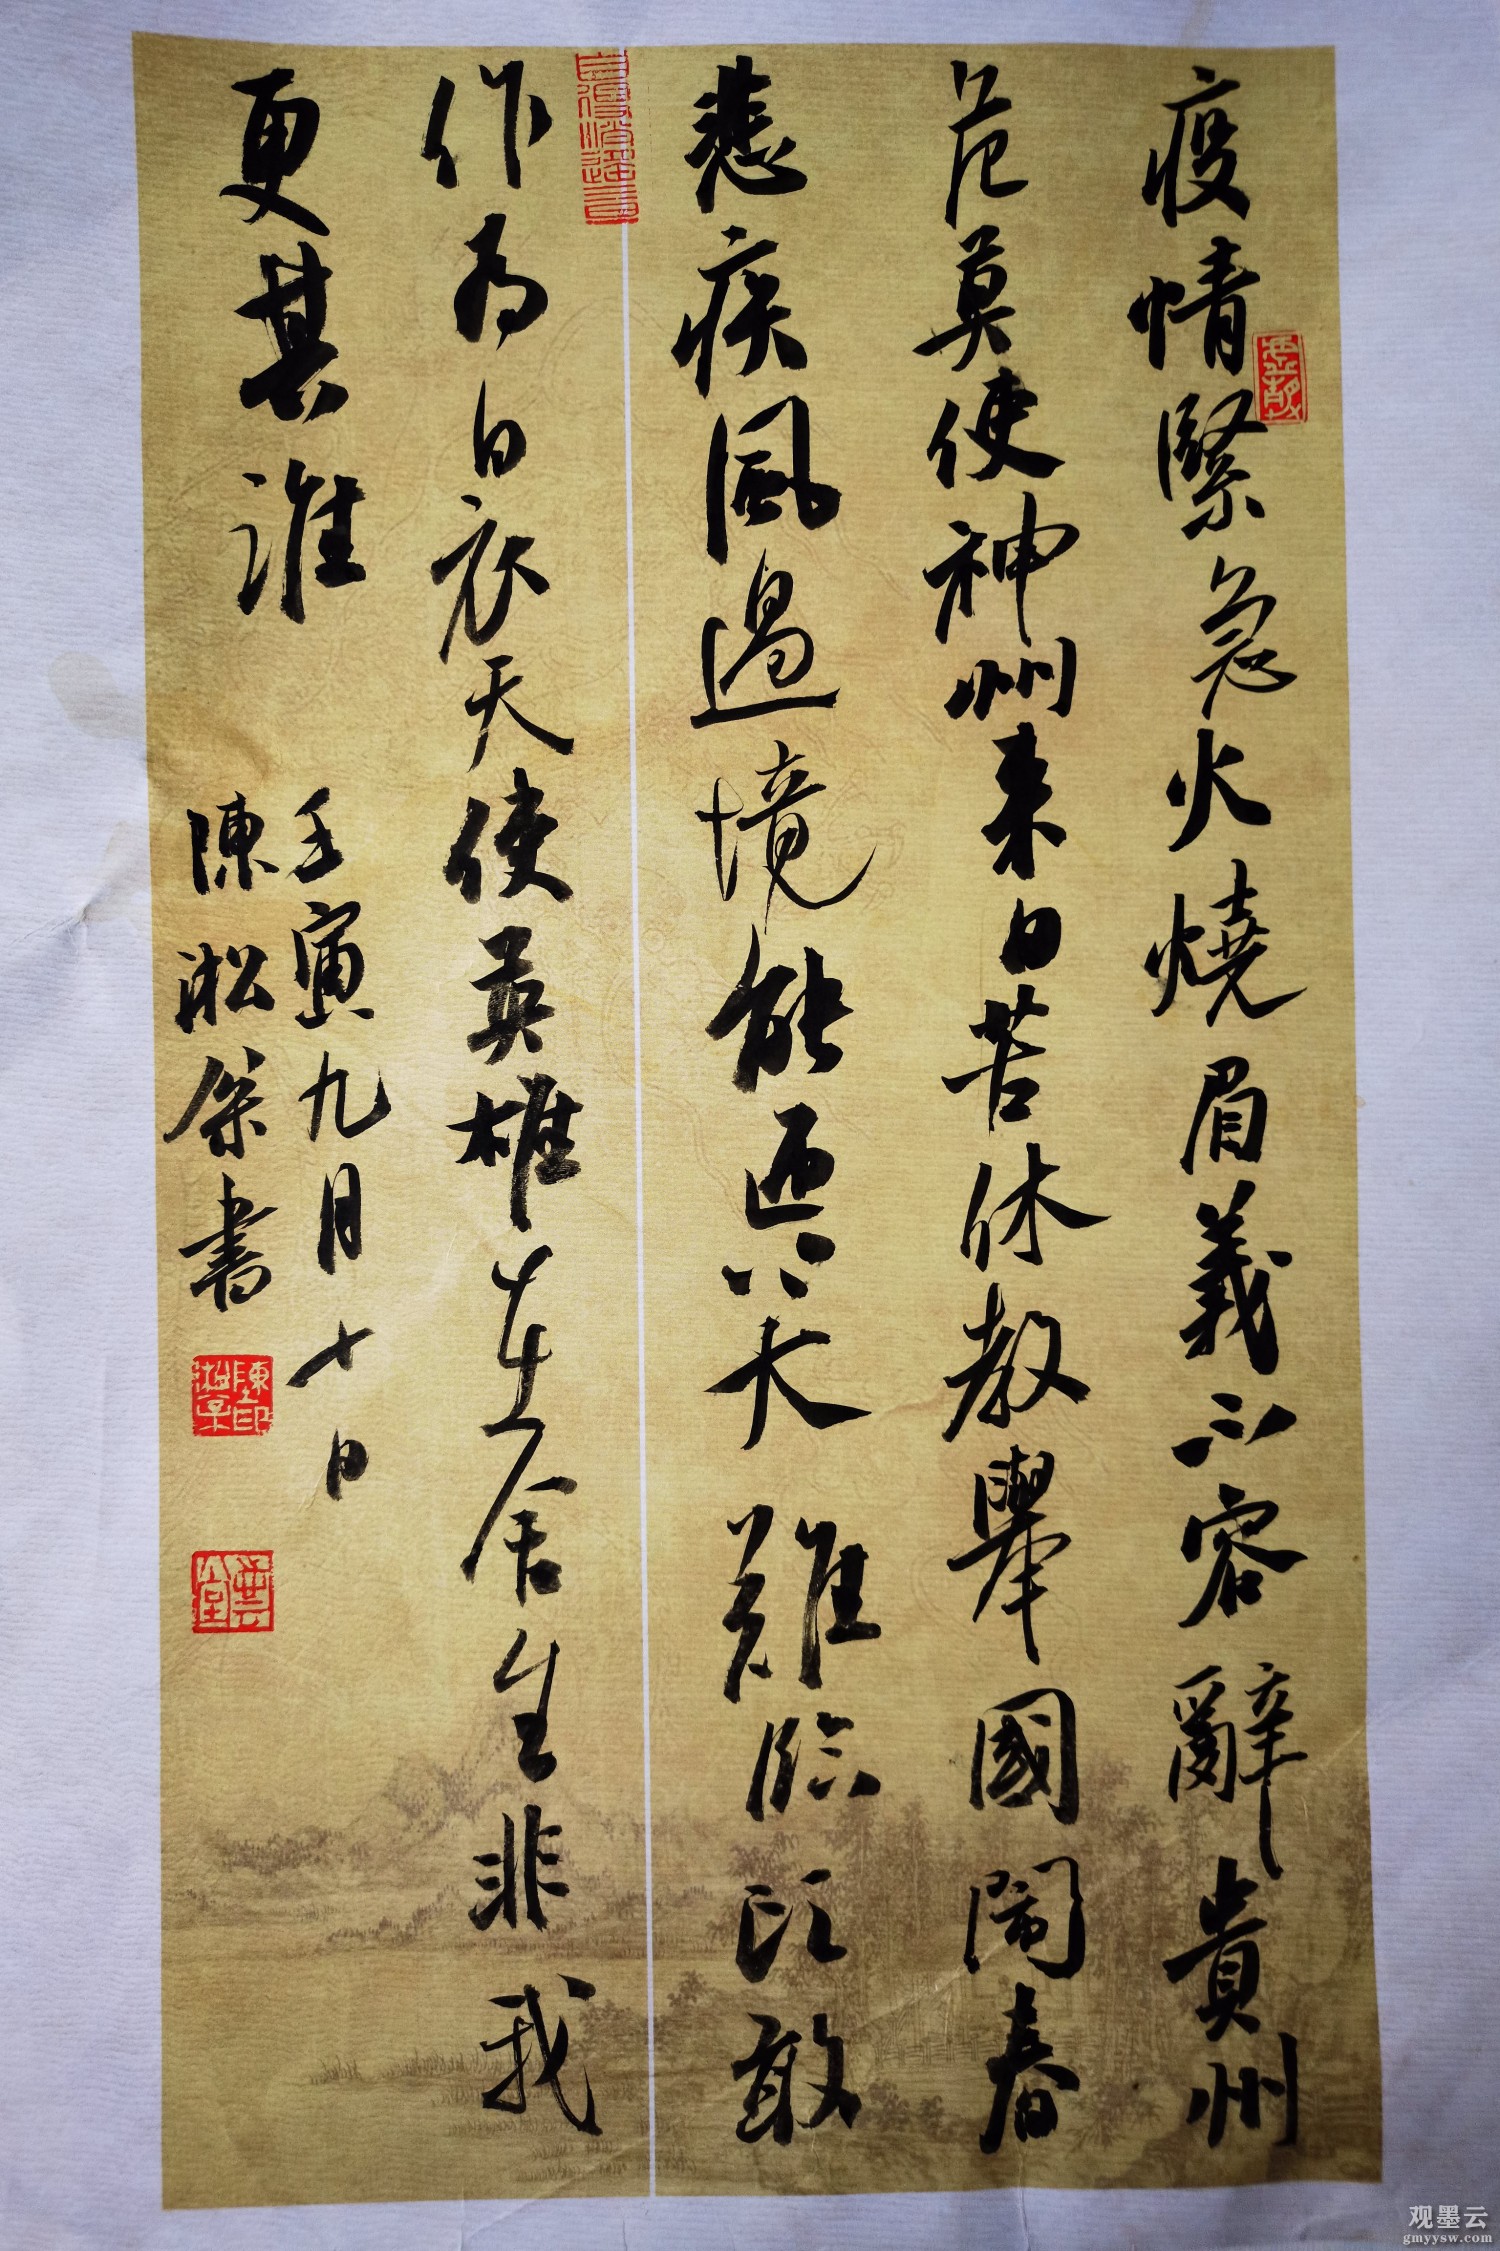 疫情緊急火燒眉義不容辭貴州
范莫使神州來日苦休教舉國鬧春
悲疾風過境能匹大難臨頭敢
作為白衣天使英雄在舍生非我
更其誰
壬寅九月十日
陳淞傑書
觀墨云
gmyysw.com